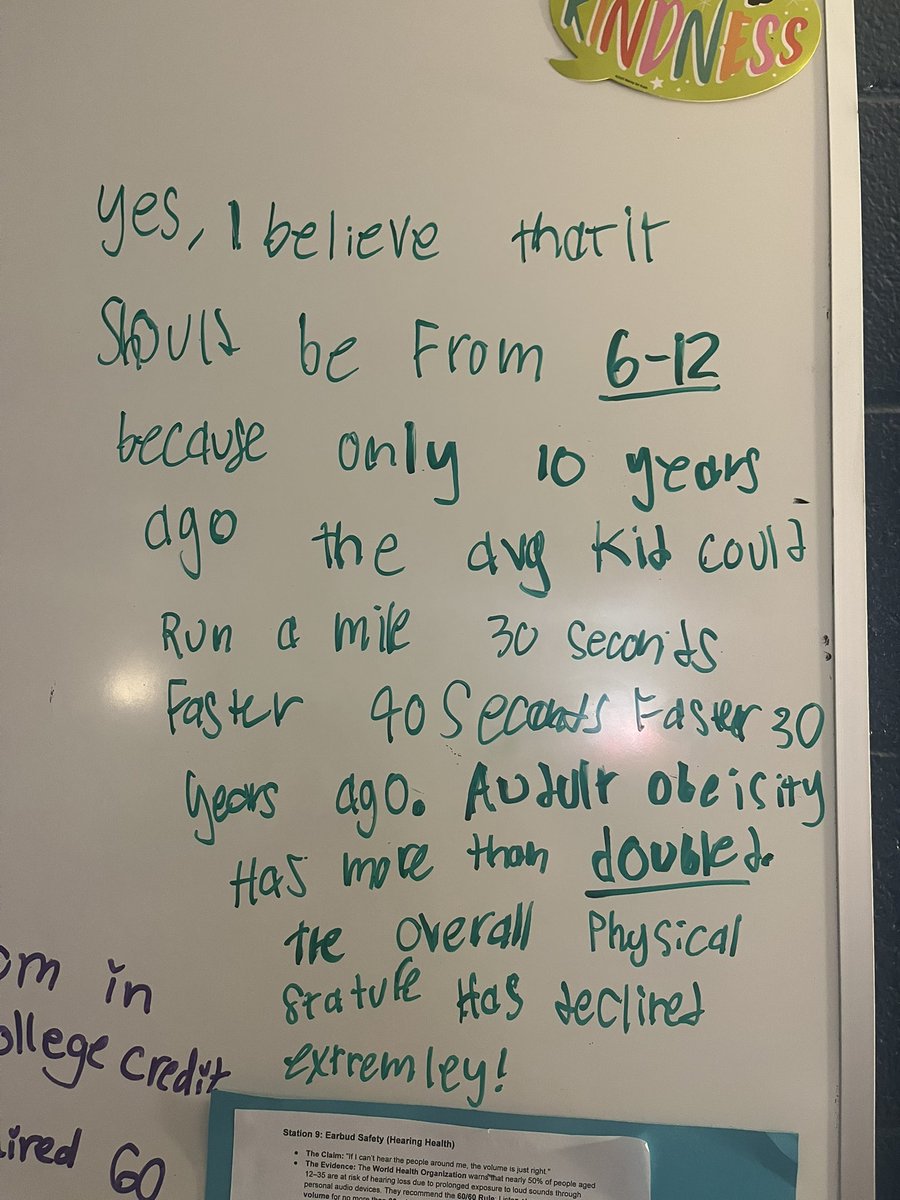 KINDNESS
yes, I believe that it
Should be From 6-12
because only 10 years
ago the avg Kid could
Run a mile 30 seconds
Faster 40 Seconds Faster 30
years ago. Audult obeisity
Has more than doubled.
the overall Physical
Stature Has declined
extremley!
om in
ollege credit
ired 60
Station 9: Earbud Safety (Hearing Health)
• The Claim: "If I can't hear the people around me, the volume is just right."
• The Evidence: The World Health Organization warns that nearly 50% of people aged
12–35 are at risk of hearing loss due to prolonged exposure to loud sounds through
personal audio devices. They recommend the 60/60 Rule:
volume for no more than